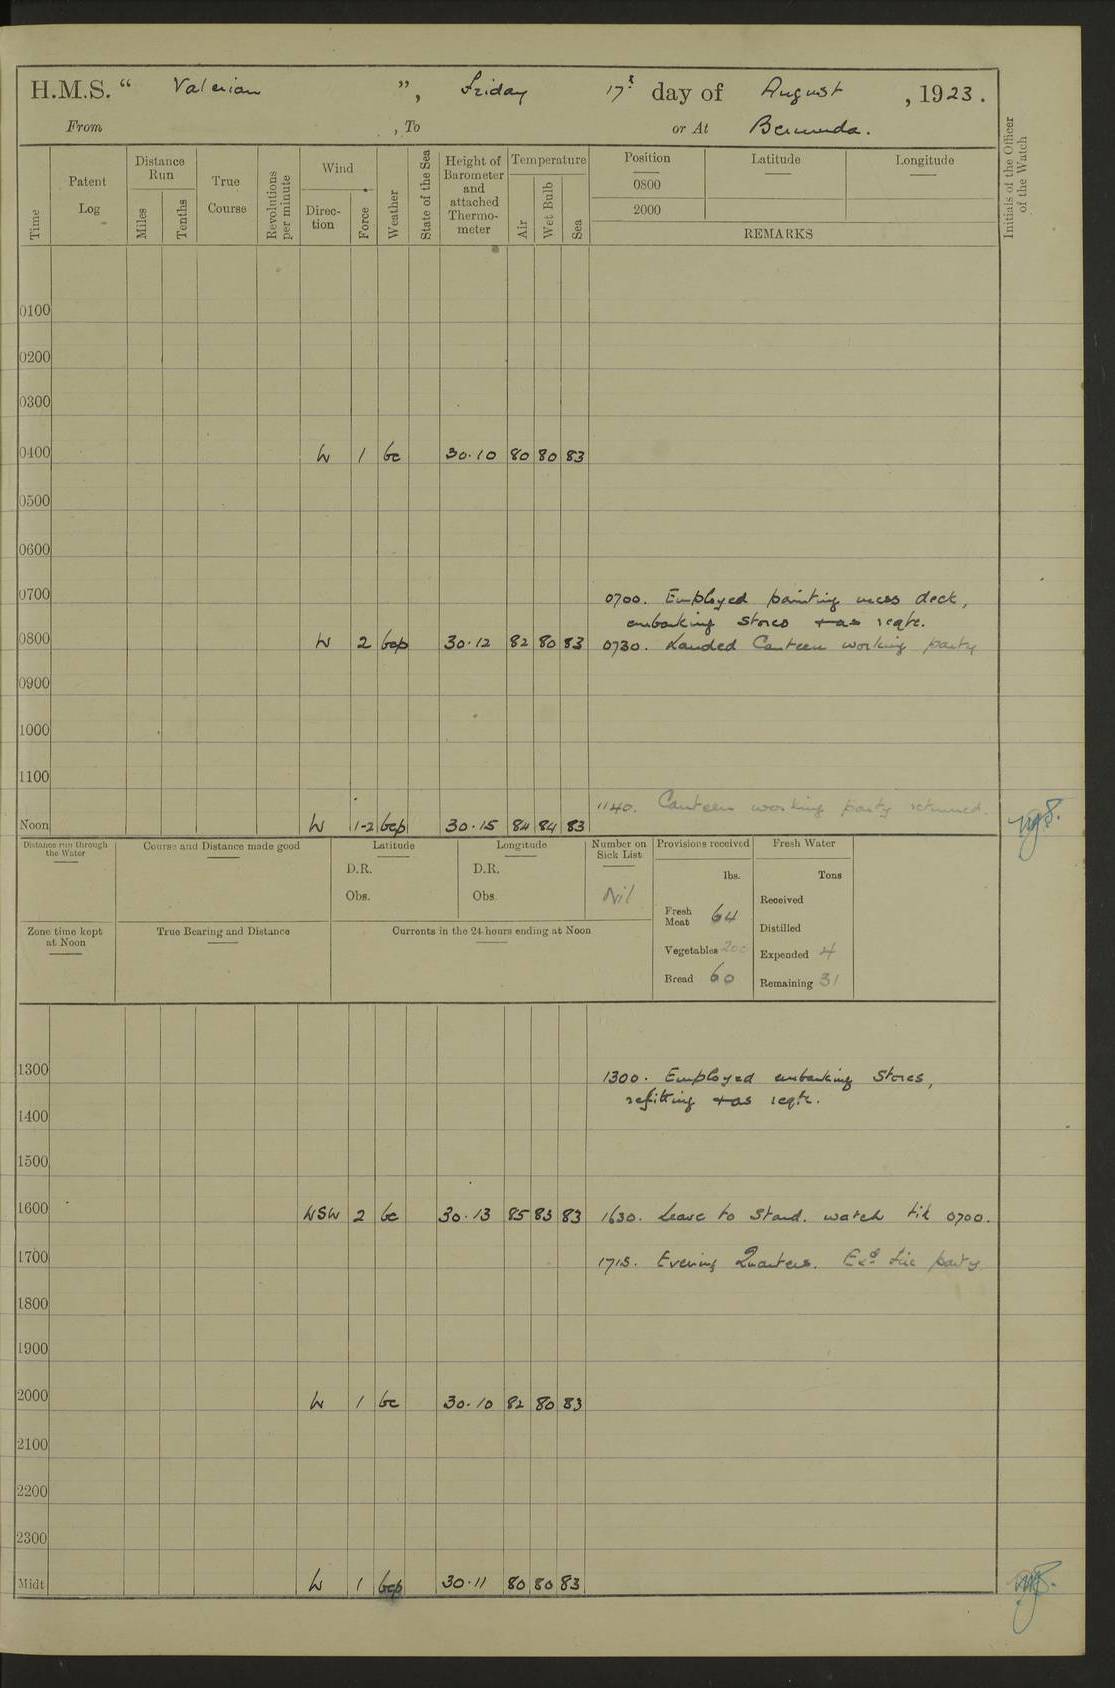 H.M.S. “ Valerian ”, Friday 17th day of August, 1923.
From , To or At Bermuda.
Time Patent Log Distance Run Miles Tenths True Course Revolutions per minute Wind Direc-tion Force Weather State of the Sea Height of Barometer and attached Thermo-meter Temperature Air Wet Bulb Sea Position 0800 2000 Latitude Longitude REMARKS Initials of the Officer of the Watch
0100
0200
0300
0400 W 1 bc 30.10 80 80 83
0500
0600
0700 0700. Employed painting mess deck,
embarking stores + as reqte.
0800 W 2 bcp 30.12 82 80 83 0730. Landed Canteen working party
0900
1000
1100
1140. Canteen working party returned.
Noon W 1-2 bcp 30.15 84 84 83
Distance run through the Water Course and Distance made good Latitude Longitude Number on Sick List Provisions received Fresh Water
D.R. D.R. lbs. Tons
Obs. Obs. Nil Received
Fresh Meat 64 Distilled
Zone time kept at Noon True Bearing and Distance Currents in the 24 hours ending at Noon
Vegetables 200 Expended 4
Bread 60 Remaining 31
1300 1300. Employed embarking Stores,
refitting + as reqte.
1400
1500
1600 WSW 2 bc 30.13 85 83 83 1630. Leave to Stand. watch till 0700.
1700 1715. Evening Quarters. Exd fire party
1800
1900
2000 W 1 bc 30.10 82 80 83
2100
2200
2300
Midt W 1 bcp 30.11 80 80 83